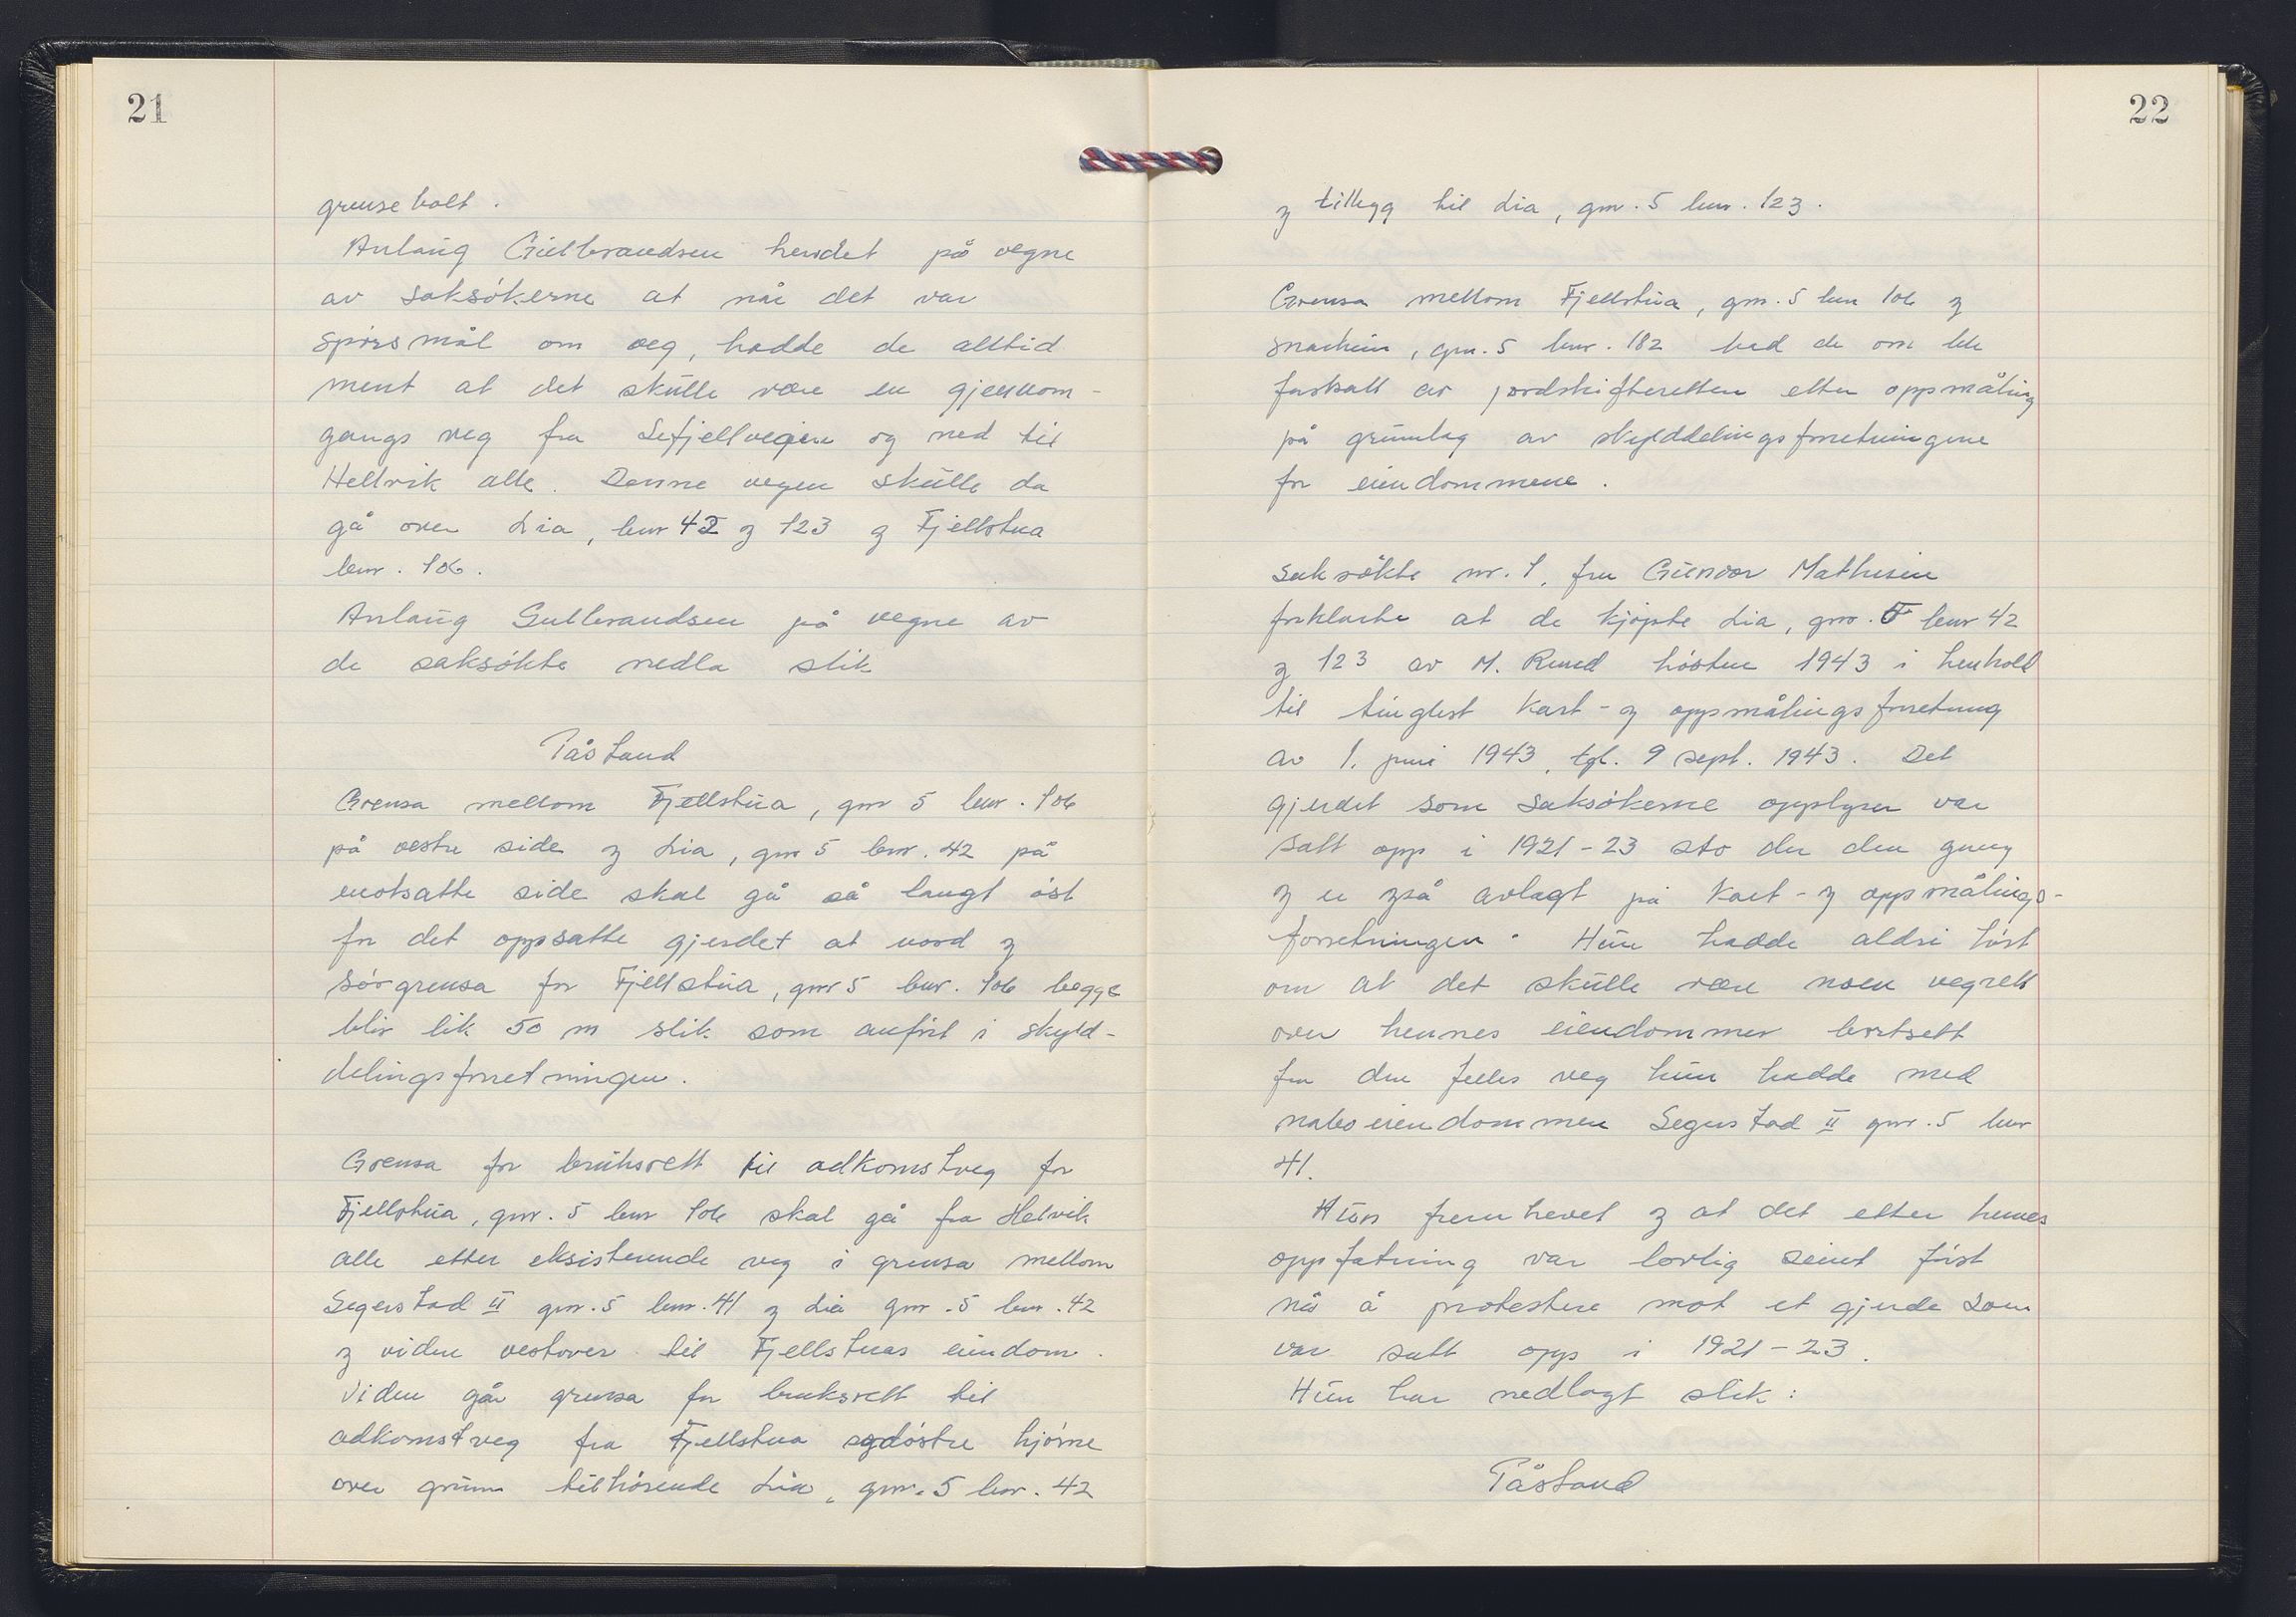 21
grensebolt.
Anlaug Gulbrandsen hevdet på vegne
av saksøkerne at når det var
spørsmål om veg, hadde de alltid
ment at det skulle være en gjennom-
gangs veg fra Sefjellvegen og ned til
Hellvik alle. Denne vegen skulle da
gå over Lia, bnr 42 og 123 og Fjellstua
bnr. 106.
Anlaug Gulbrandsen på vegne av
de saksøkte nedla slik
Påstand
Grensa mellom Fjellstua, gnr 5 bnr. 106
på vestre side og Lia, gnr 5 bnr. 42 på
motsatte side skal gå så langt øst
for det oppsatte gjerdet at nord og
sørgrensa for Fjellstua, gnr 5 bnr. 106 begge
blir lik 50 m slik som anført i skyld-
delingsforretningen.
Grensa for bruksrett til adkomstveg for
Fjellstua, gnr. 5 bnr 106 skal gå fra Helvik
alle etter eksisterende veg i grensa mellom
Segerstad II gnr. 5 bnr. 41 og Lia gnr. 5 bnr. 42
og videre vestover til Fjellstuas eiendom.
Videre går grensa for bruksrett til
adkomstveg fra Fjellstua sydøstre hjørne
over grunn tilhørende Lia, gnr. 5 bnr. 42
22
og tillegg til Lia, gnr. 5 bnr. 123.
Grensa mellom Fjellstua, gnr. 5 bnr 106 og
gnr. 5 bnr. 182 bad de om ble
fastsatt av jordskifteretten etter oppmåling
på grunnlag av skylddelingsforretningene
for eiendommene.
Saksøkte nr. 1, fru Gunvor Mathisen
forklarte at de kjøpte Lia, gnr. 5 bnr 42
og 123 av M. Ruud høsten 1943 i henhold
til tinglest kart- og oppmålingsforretning
av 1. juni 1943, tgl. 9 sept. 1943. Det
gjerdet som saksøkerne opplyser var
satt opp i 1921-23 sto der den gang
og er også avlagt på kart- og oppmålings-
forretningen. Hun hadde aldri hørt
om at det skulle være noen vegrett
over hennes eiendommer bortsett
fra den felles veg hun hadde med
naboeiendommen Segerstad II gnr. 5 bnr
41.
Hun fremhevet og at det etter hennes
oppfatning var lovlig seint først
nå å protestere mot et gjerde som
var satt opp i 1921-23.
Hun har nedlagt slik:
Påstand